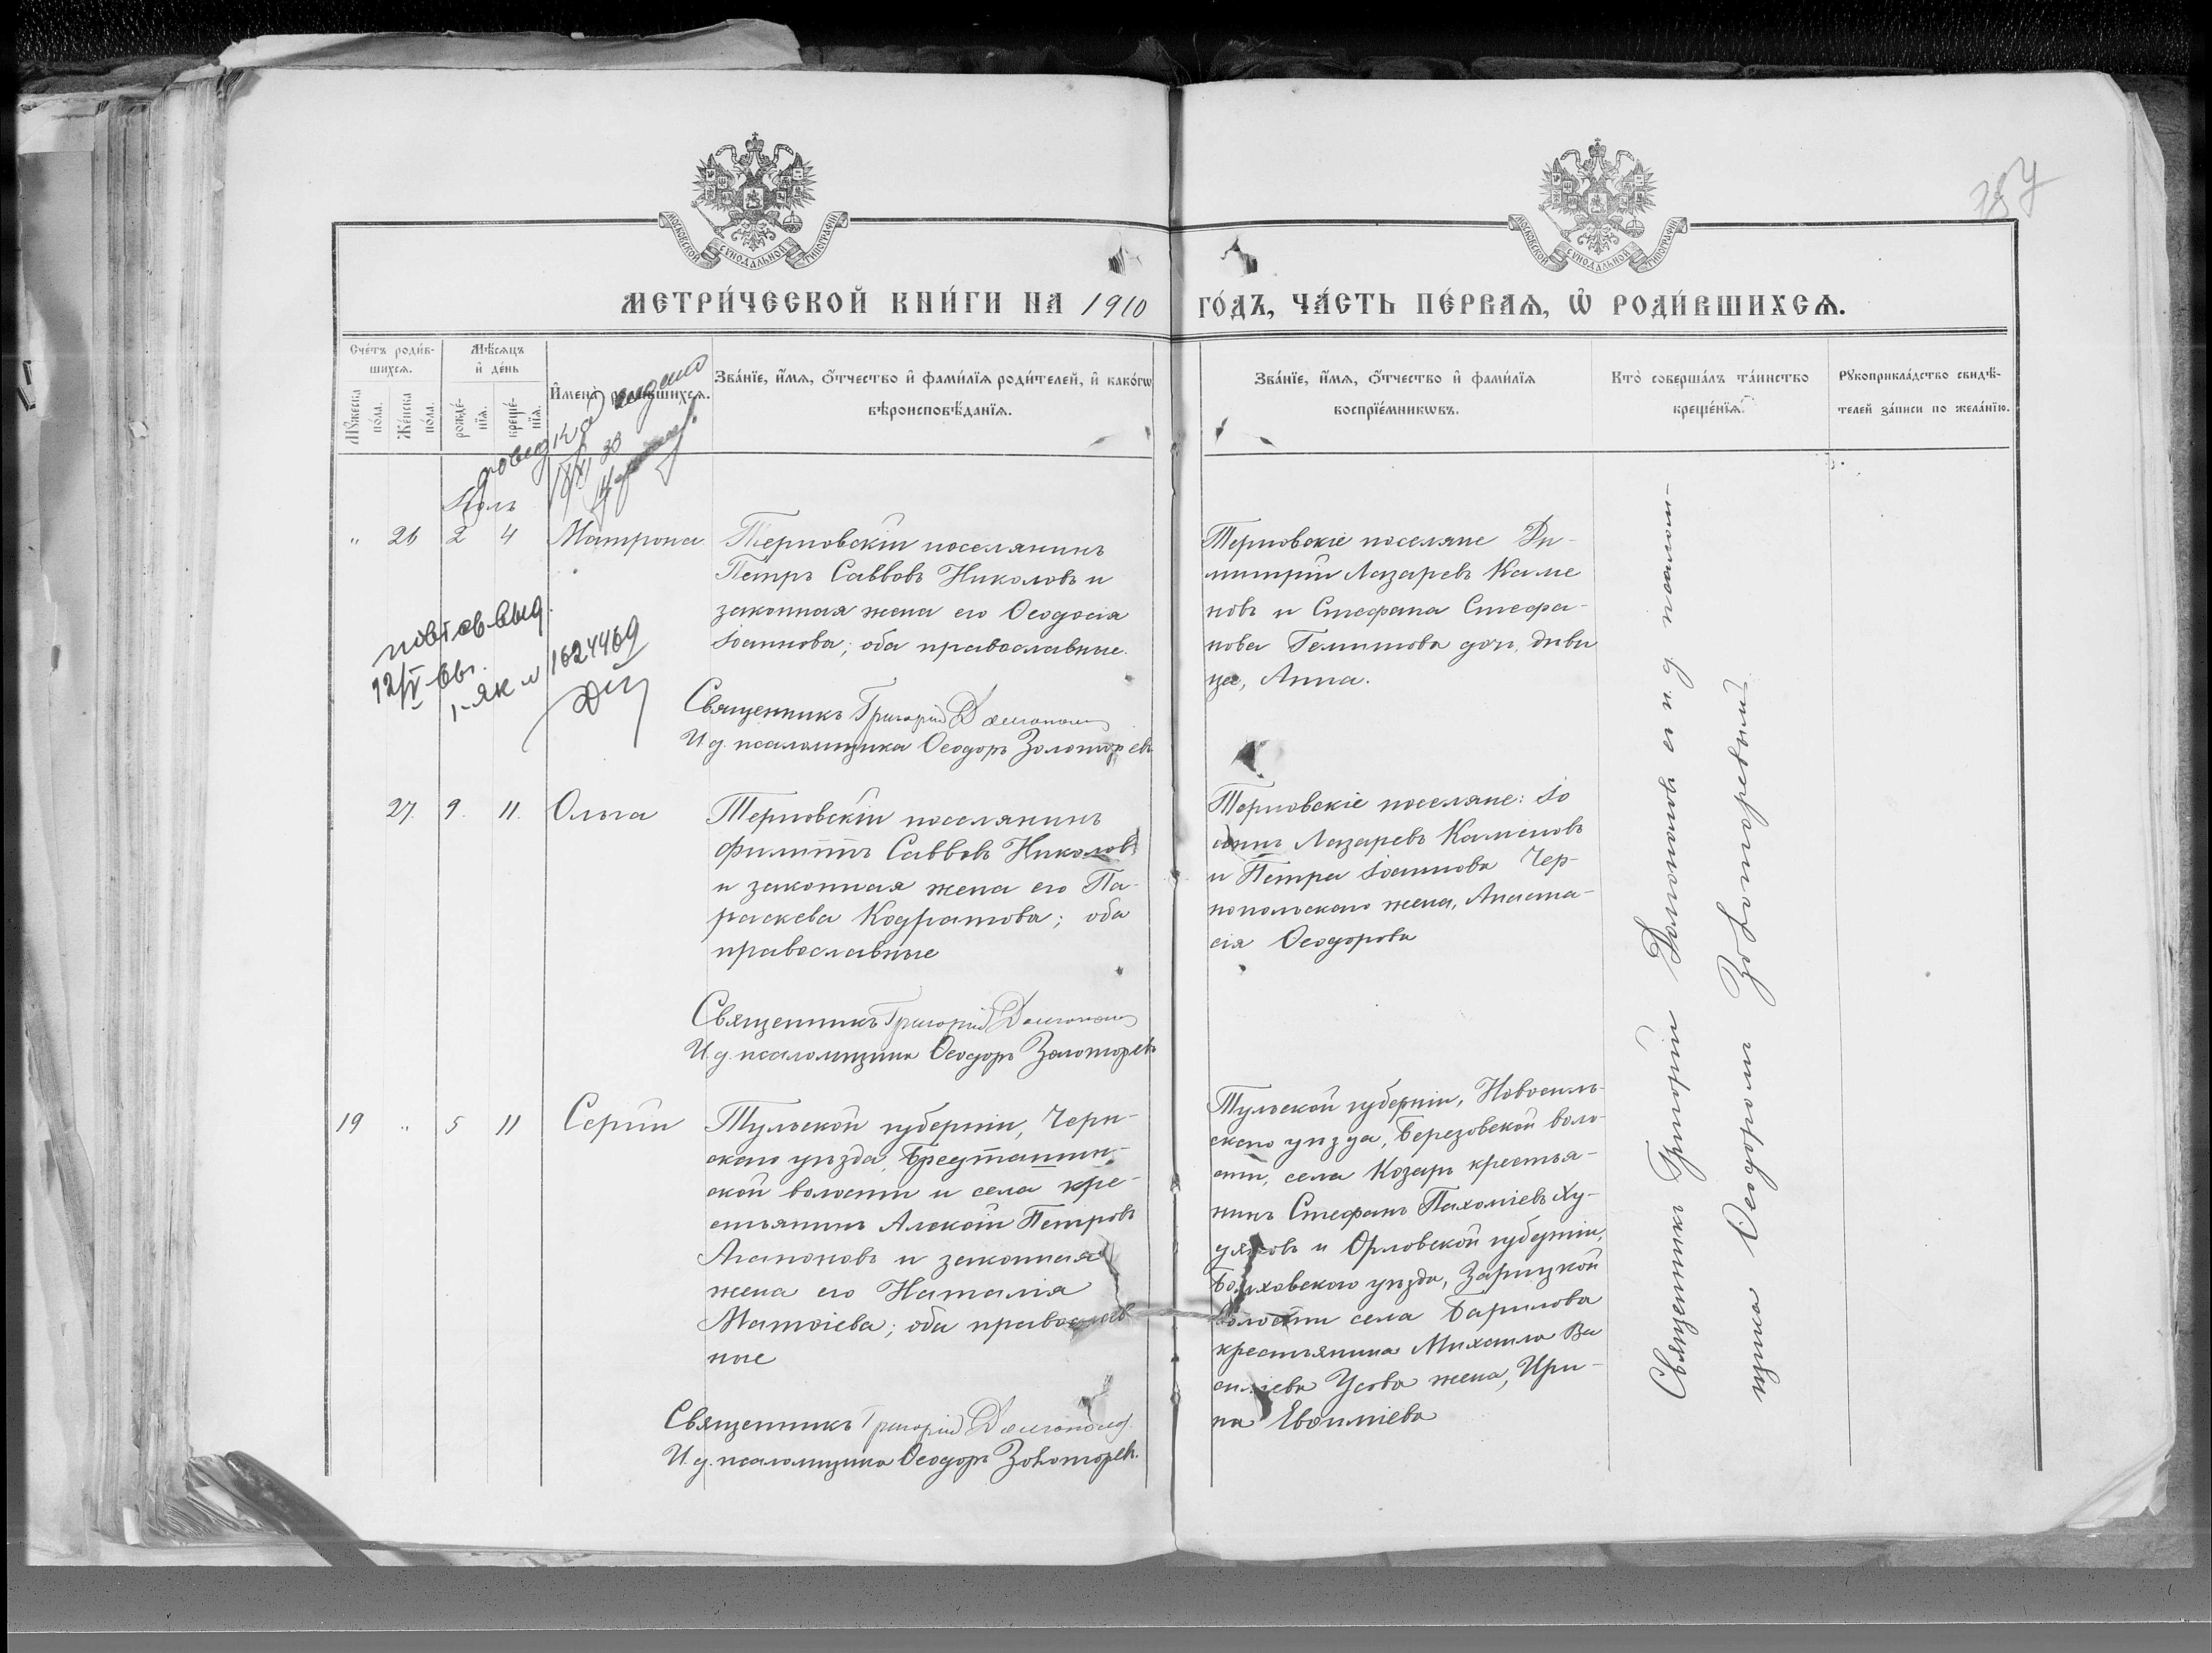 МОСКОВСКОЙ СУНОДАЛЬНОЙ ТИПОГРАФІИ
МОСКОВСКОЙ СУНОДАЛЬНОЙ ТИПОГРАФІИ
МЕТРИ́ЧЕСКОЙ КНИ́ГИ НА 1910 ГО́ДЪ, ЧА́СТЬ ПЕ́РВАЯ, Ѿ РОДИ́ВШИХСЯ.
Сче́тъ роди́в-
шихся.
Мꙋ́жеска
пола.
Же́нска
по́ла.
Мѣ́сяцъ
и҆ де́нь
рожде́-
нїя.
креще́-
нїя.
И҆мена̀ роди́вшихся.
Зва́нїе, и҆́мя, ѻ҆́тчество и҆ фами́лїя роди́телей, и҆ како́гѡ
вѣроисповѣ́данїя.
Зва́нїе, и҆́мя, ѻ҆́тчество и҆ фами́лїя
воспрїе́мникѡвъ.
Кто̀ соверша́лъ та́инство
креще́нїя.
Рꙋкоприкла́дство свидѣ́-
телей за́писи по жела́нїю.
Іюль
„ 26 2 4 Матрона
Терновскій поселянинъ
Петръ Саввовъ Николовъ и
законная жена его Ѳеодосія
Іоаннова; оба православные.
Священникъ Григорій
И. д. псаломщика Ѳеодоръ Золоторевъ
Терновскіе поселяне Ди-
митрій Лазаревъ Каме
новъ и Стефана Стефа-
нова дочь, дѣви
ца, Анна.
1624469
27. 9. 11. Ольга
Терновскій поселянинъ
Филиппъ Саввовъ Николовъ
и законная жена его Па-
раскева Кодратова; оба
православные
Священникъ Григорій
И. д. псаломщика Ѳеодоръ Золоторевъ
Терновскіе поселяне: Іо
аннъ Лазаревъ Каменовъ
и Петра Іоаннова Чер-
нопольскаго жена, Анаста-
сія Ѳеодорова
19 „ 5 11 Сергій
Тульской губерніи, Черн-
скаго уѣзда,
ской волости и села кре-
стьянинъ Алексій Петровъ
Агапоновъ и законная
жена его Наталія
Матѳіева; оба православ
ные
Священникъ Григорій
И. д. псаломщика Ѳеодоръ Золоторевъ.
Тульской губерніи, Новосиль-
скаго уѣзда, Березовской воло-
сти, села Козарь крестья-
нинъ Стефанъ Пахоміевъ Ху-
дяковъ и Орловской губерніи,
Болховского уѣзда, Зарѣцкой
волости села Барилова
крестьянина Михаила Ва
силіева Усова жена, Ири-
на Евѳиміева
Священникъ Григорій съ и. д. псалом-
щика Ѳеодоромъ Золоторевымъ